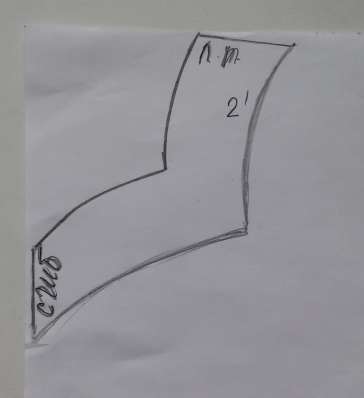 п.т.
2'
сгиб